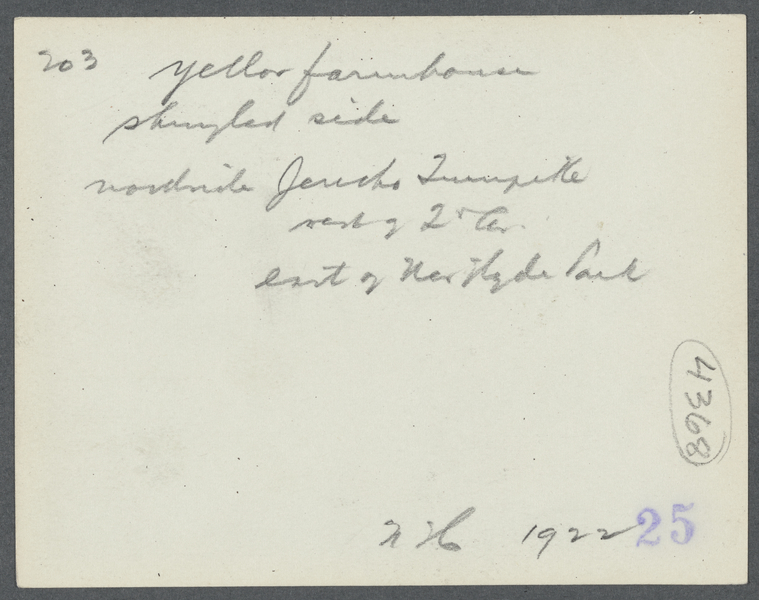 203 yellow farmhouse
shingled side
northside Jericho Turnpike
west of 2d Av.
east of New Hyde Park
4368
N H 1922 25